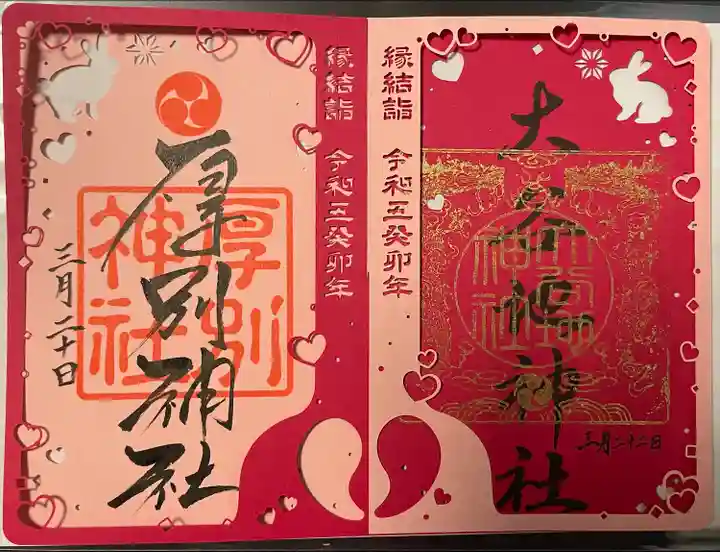 三月二十二日
大谷地神社
大谷地
神社
縁結詣 令和五癸卯年
縁結詣 令和五癸卯年
厚別神社
厚別
神社
三月二十日